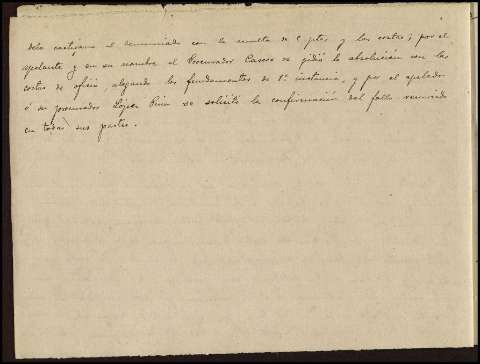 debe castigarse al denunciado con la multa de 5 ptas y las costas; por el
apelante y en su nombre el Procurador Casado se pidió la absolución con las
costas de oficio, alegando los fundamentos de 1ª instancia, y por el apelado
ó su procurador López Pisin se solicitó la confirmación del fallo recurrido
en todas sus partes.